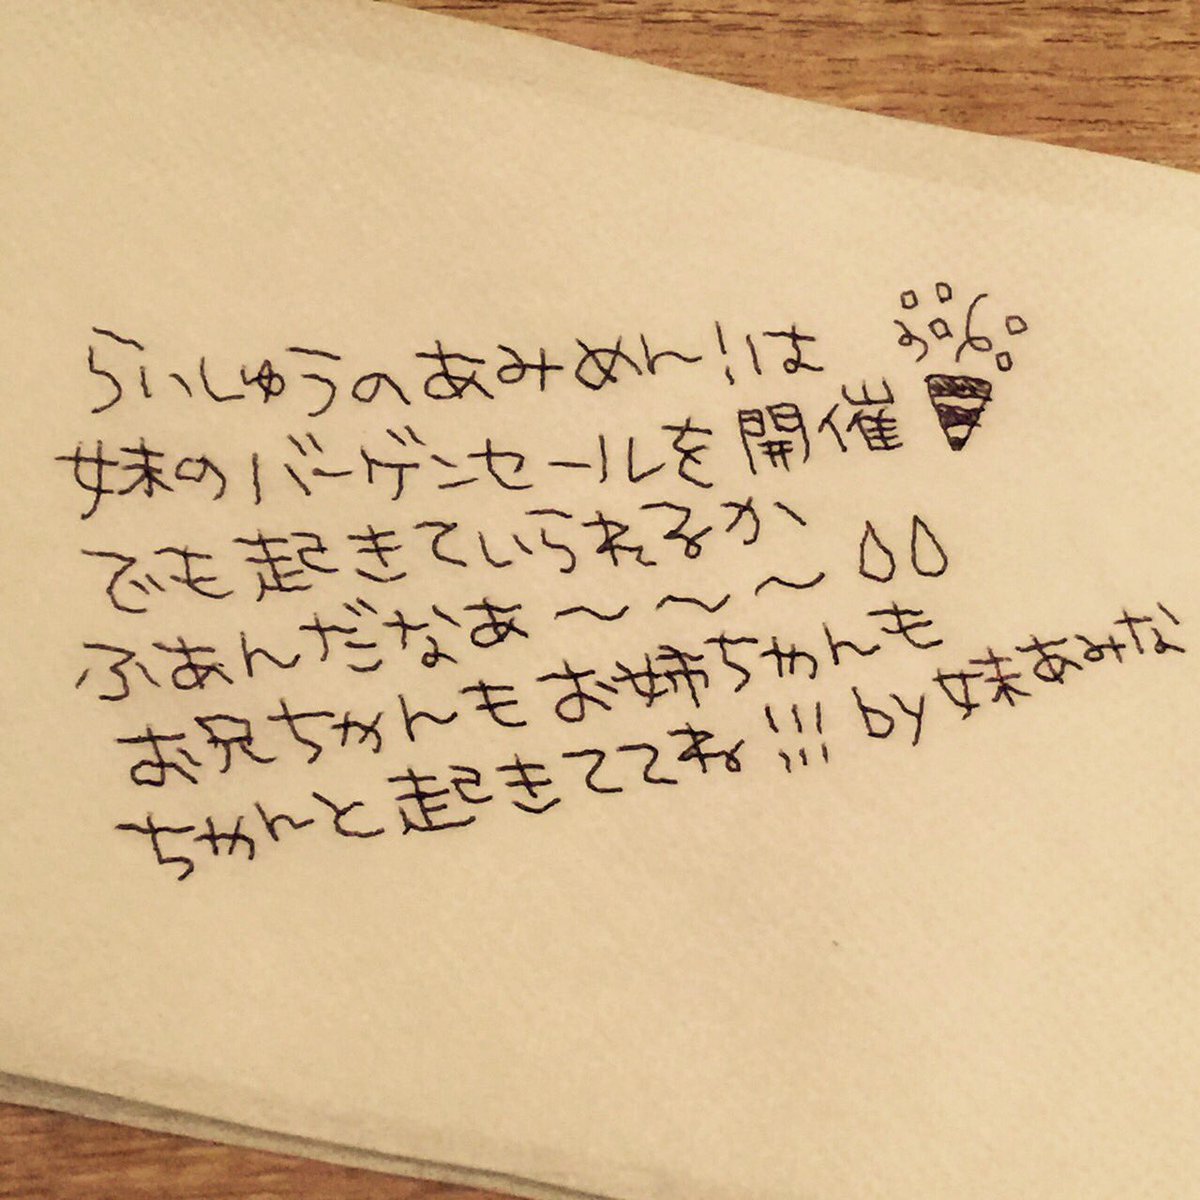 らいしゅうのあみめん!は
妹のバーゲンセールを開催
でも起きていられるか
ふあんだなあ〜〜〜
お兄ちゃんもお姉ちゃんも
ちゃんと起きててね!!! by妹あみな